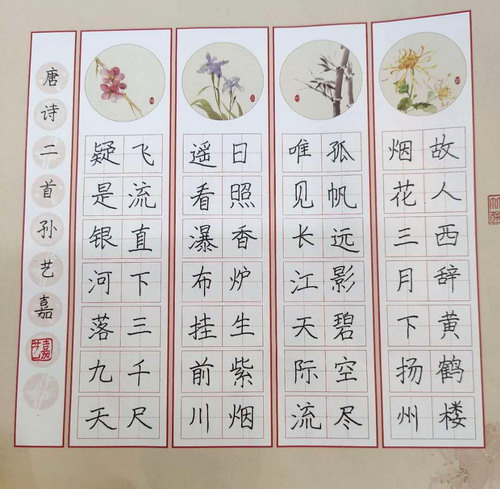 故人西辞黄鹤楼
烟花三月下扬州
孤帆远影碧空尽
唯见长江天际流
日照香炉生紫烟
遥看瀑布挂前川
飞流直下三千尺
疑是银河落九天
唐诗二首孙艺嘉